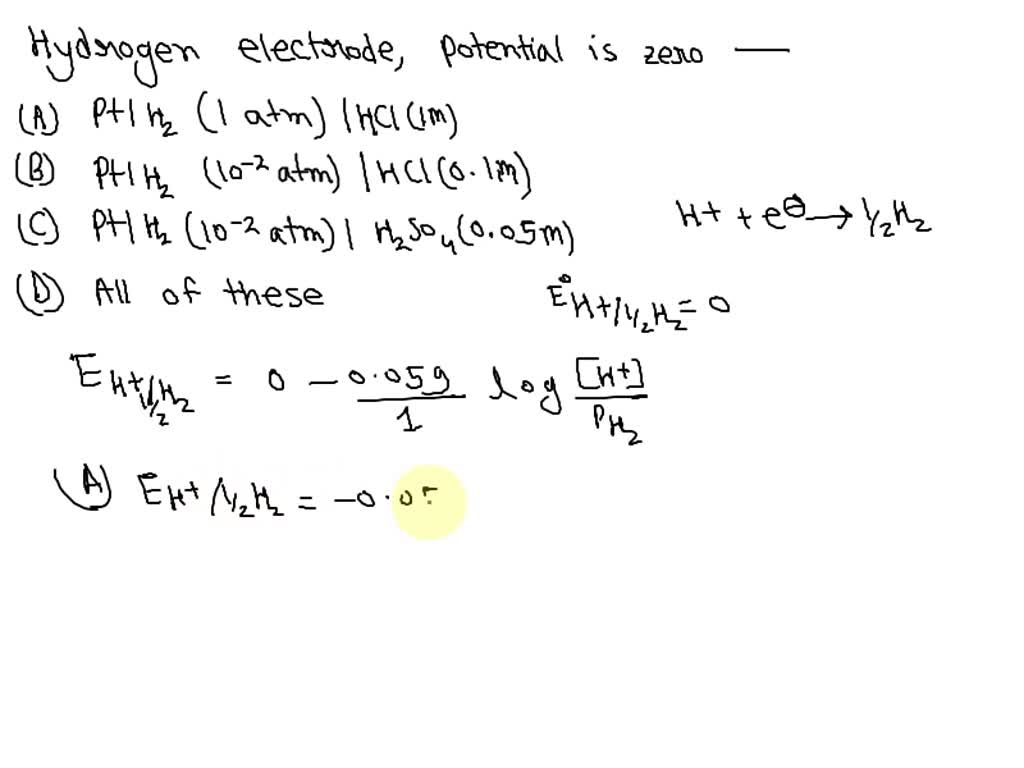 Hydrogen electrode, potential is zero —
(A) Pt | H₂ (1 atm) | HCl (1m)
(B) Pt | H₂ (10⁻² atm) | HCl (0.1m)
(C) Pt | H₂ (10⁻² atm) | H₂SO₄ (0.05m)
H+ + e⊖ → 1/2 H₂
(D) All of these
E°H+/1/2H₂ = 0
EH+/1/2H₂ = 0 - 0.059/1 log [H+]/PH₂
(A) E°H+/1/2H₂ = -0.05